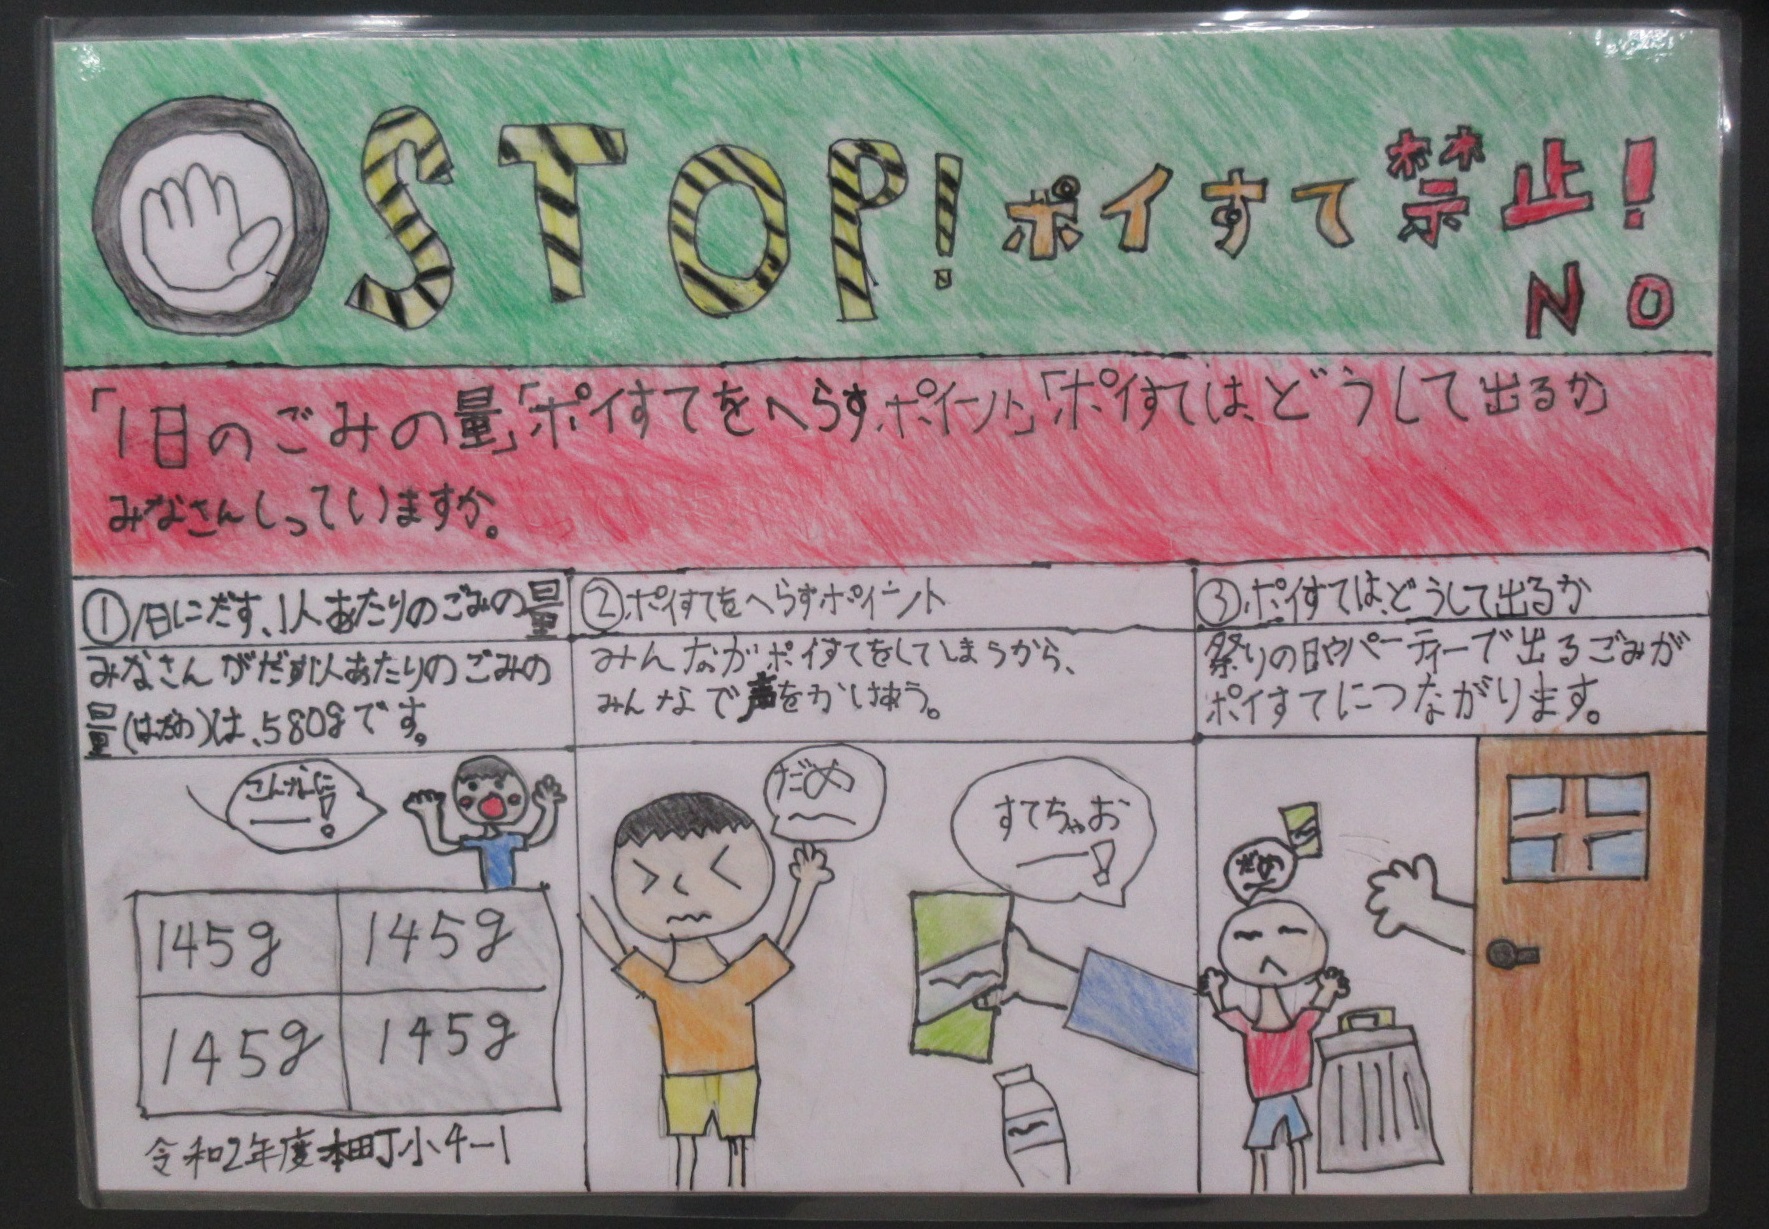 STOP!ポイすて禁止!
NO
「1日のごみの量」「ポイすてをへらすポイント」「ポイすては、どうして出るか」
みなさんしっていますか。
①1日にだす、1人あたりのごみの量
みなさんがだす1人あたりのごみの
量(はだの)は、580gです。
こんなに!
145g 145g
145g 145g
令和2年度本町小4-1
②ポイすてをへらすポイント
みんながポイすてをしてしまうから、
みんなで声をかけあう。
だめー
すてちゃお
ー!
③ポイすては、どうして出るか
祭りの日やパーティーで出るごみが
ポイすてにつながります。
だめ